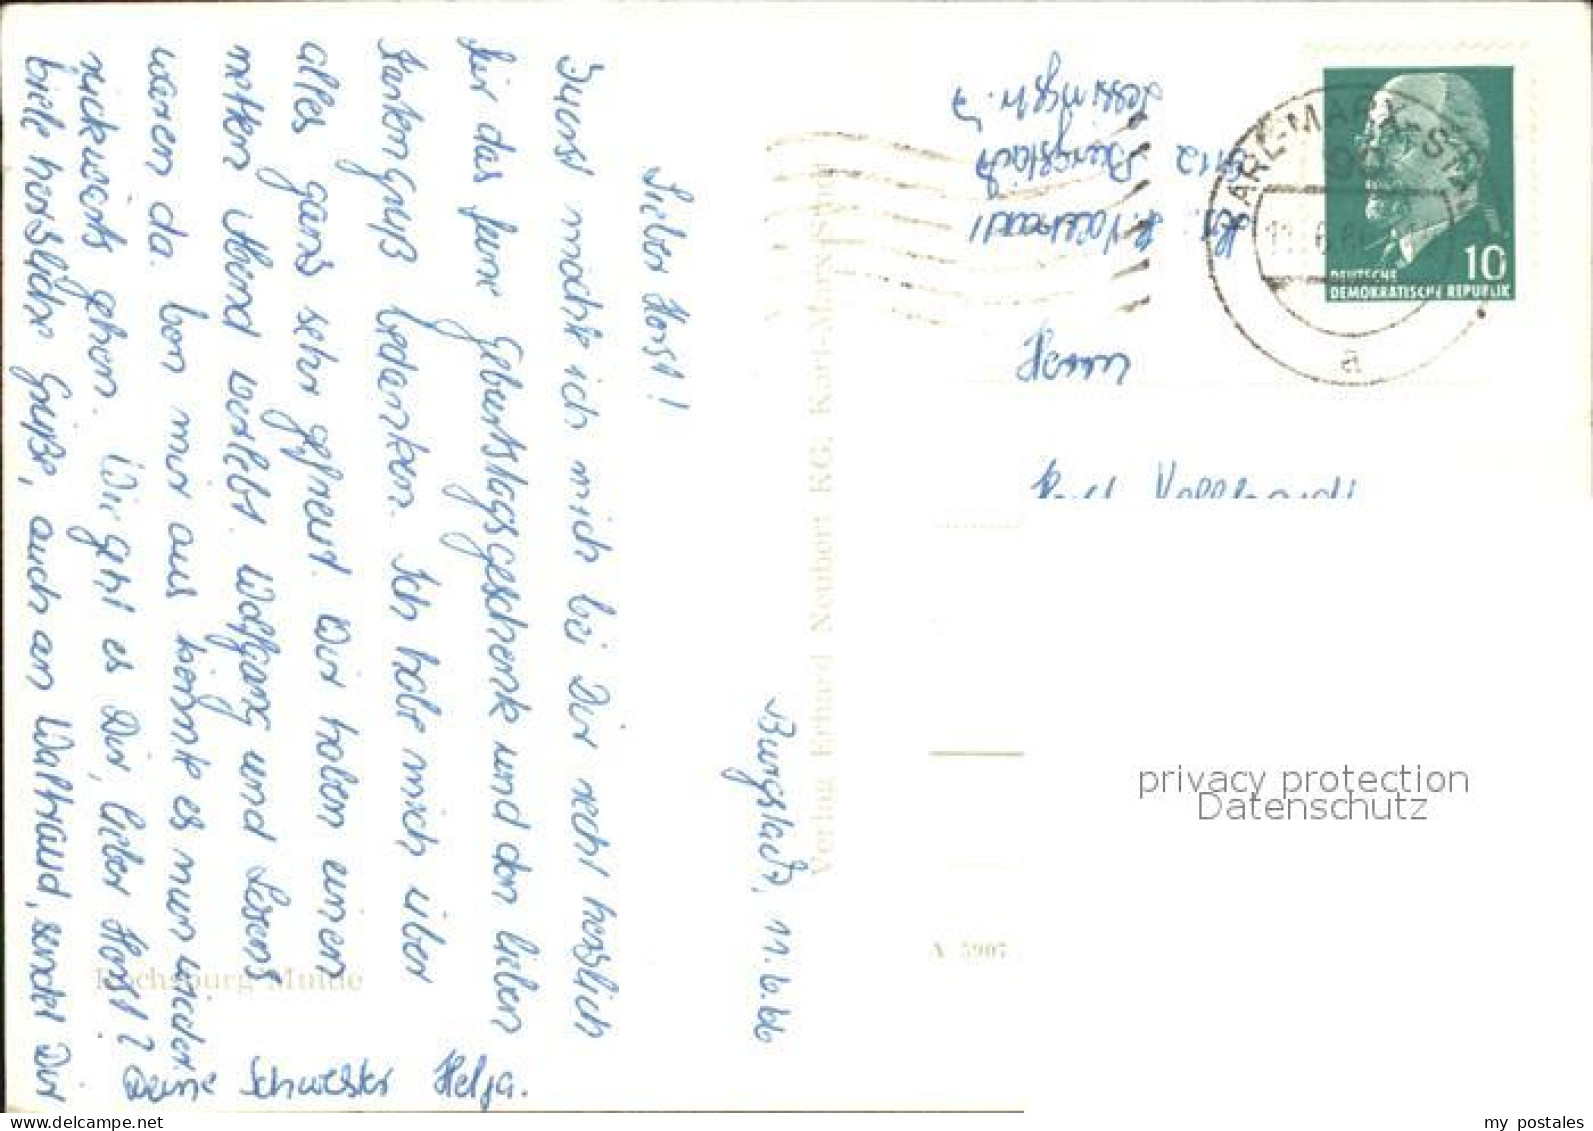 Burgstädt, 11.6.66
Lieber Horst!
Zuerst möchte ich mich bei Dir recht herzlich
für das feine Geburtstagsgeschenk und den lieben
Kartengruß bedanken. Ich habe mich über
alles ganz sehr gefreut. Wir haben einen
netten Abend verlebt. Wolfgang und Lisens
waren da. Von mir aus könnte es nun wieder
rückwärts gehen. Wie geht es Dir, lieber Horst?
Viele herzliche Grüße, auch an Waltraud, sendet Dir
Deine Schwester Helga.
Rochsburg Mulde
Verlag Erhard Neubert KG, Karl-Marx-Stadt
A 5907
Burgstädt
Lessingstr. 7
KARL-MARX-STADT
90
a
10
DEUTSCHE
DEMOKRATISCHE REPUBLIK
privacy protection
Datenschutz
my postales